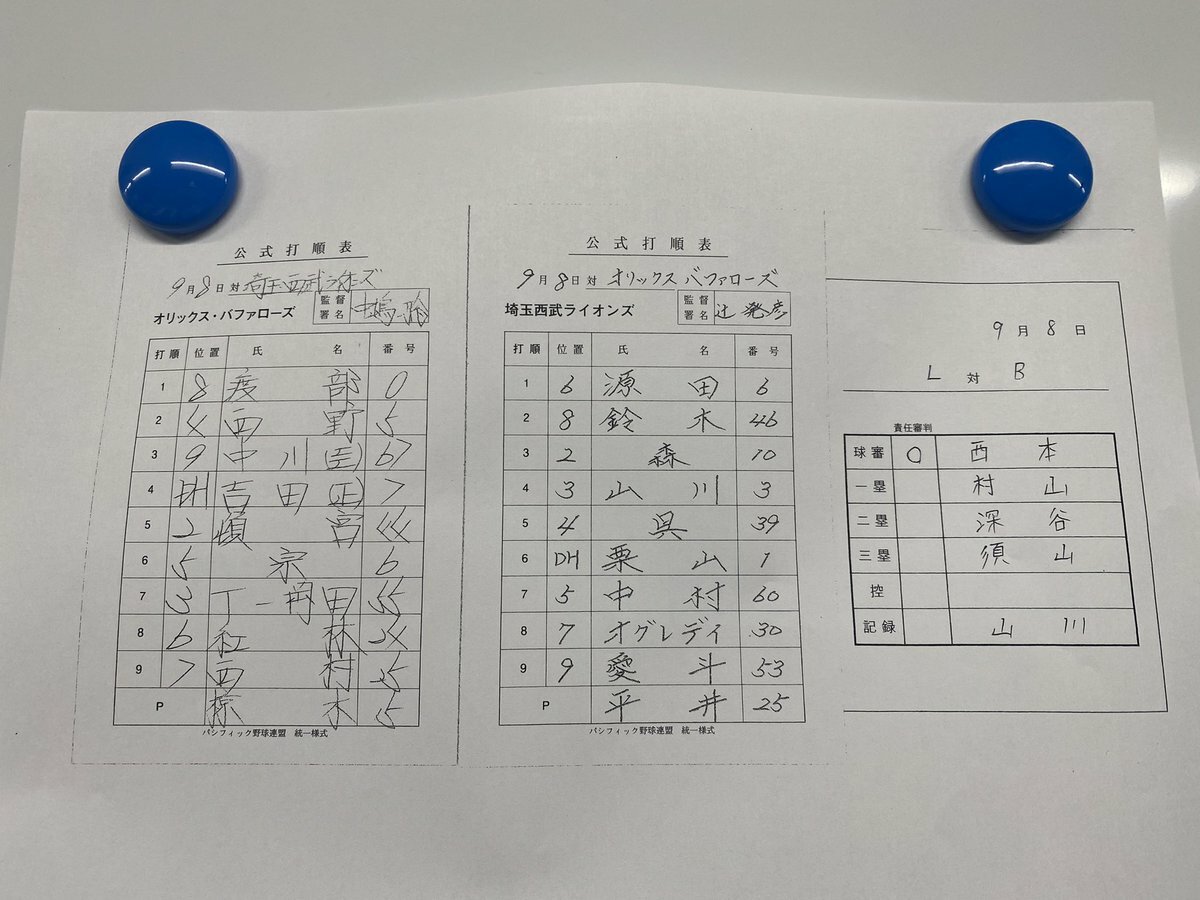 公式打順表
9月8日対 埼玉西武ライオンズ
オリックス・バファローズ 監督署名 中嶋 聡
打順 位置 氏 名 番号
1 8 渡部 0
2 4 西野 5
3 9 中川(圭) 67
4 DH 吉田(正) 7
5 2 頓宮 44
6 5 宗 6
7 3 T-岡田 55
8 6 紅林 24
9 7 西村 25
P 椋木 15
パシフィック野球連盟 統一様式
公式打順表
9月8日対 オリックスバファローズ
埼玉西武ライオンズ 監督署名 辻 発彦
打順 位置 氏 名 番号
1 6 源田 6
2 8 鈴木 46
3 2 森 10
4 3 山川 3
5 4 呉 39
6 DH 栗山 1
7 5 中村 60
8 7 オグレディ 30
9 9 愛斗 53
P 平井 25
パシフィック野球連盟 統一様式
9月8日
L 対 B
責任審判
球審 ○ 西本
一塁 村山
二塁 深谷
三塁 須山
控
記録 山川